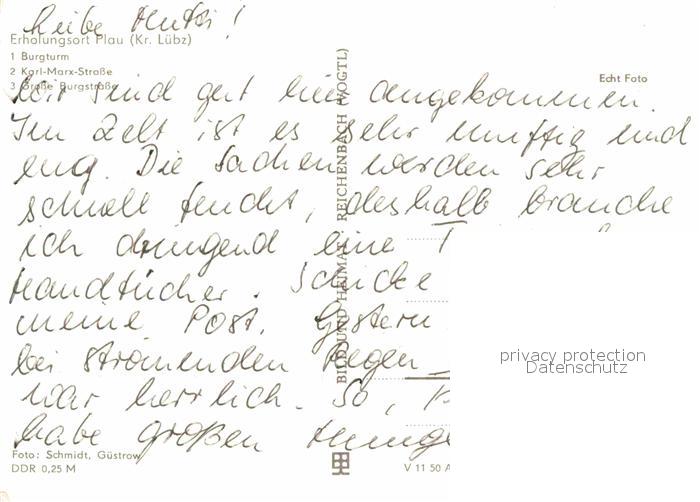 Liebe Mutti!
Erholungsort Plau (Kr. Lübz)
1 Burgturm
2 Karl-Marx-Straße
3 Große Burgstraße
Echt Foto
Wir sind gut hier angekommen.
Im Zelt ist es sehr muffig und
eng. Die Sachen werden sehr
schnell feucht, deshalb brauche
ich dringend eine
Handtücher. Schicke
meine Post. Gestern
bei strömenden Regen
war herrlich. So,
habe großen
BILD UND HEIMAT REICHENBACH (VOGTL)
privacy protection
Datenschutz
Foto: Schmidt, Güstrow
DDR 0,25 M
V 11 50 A